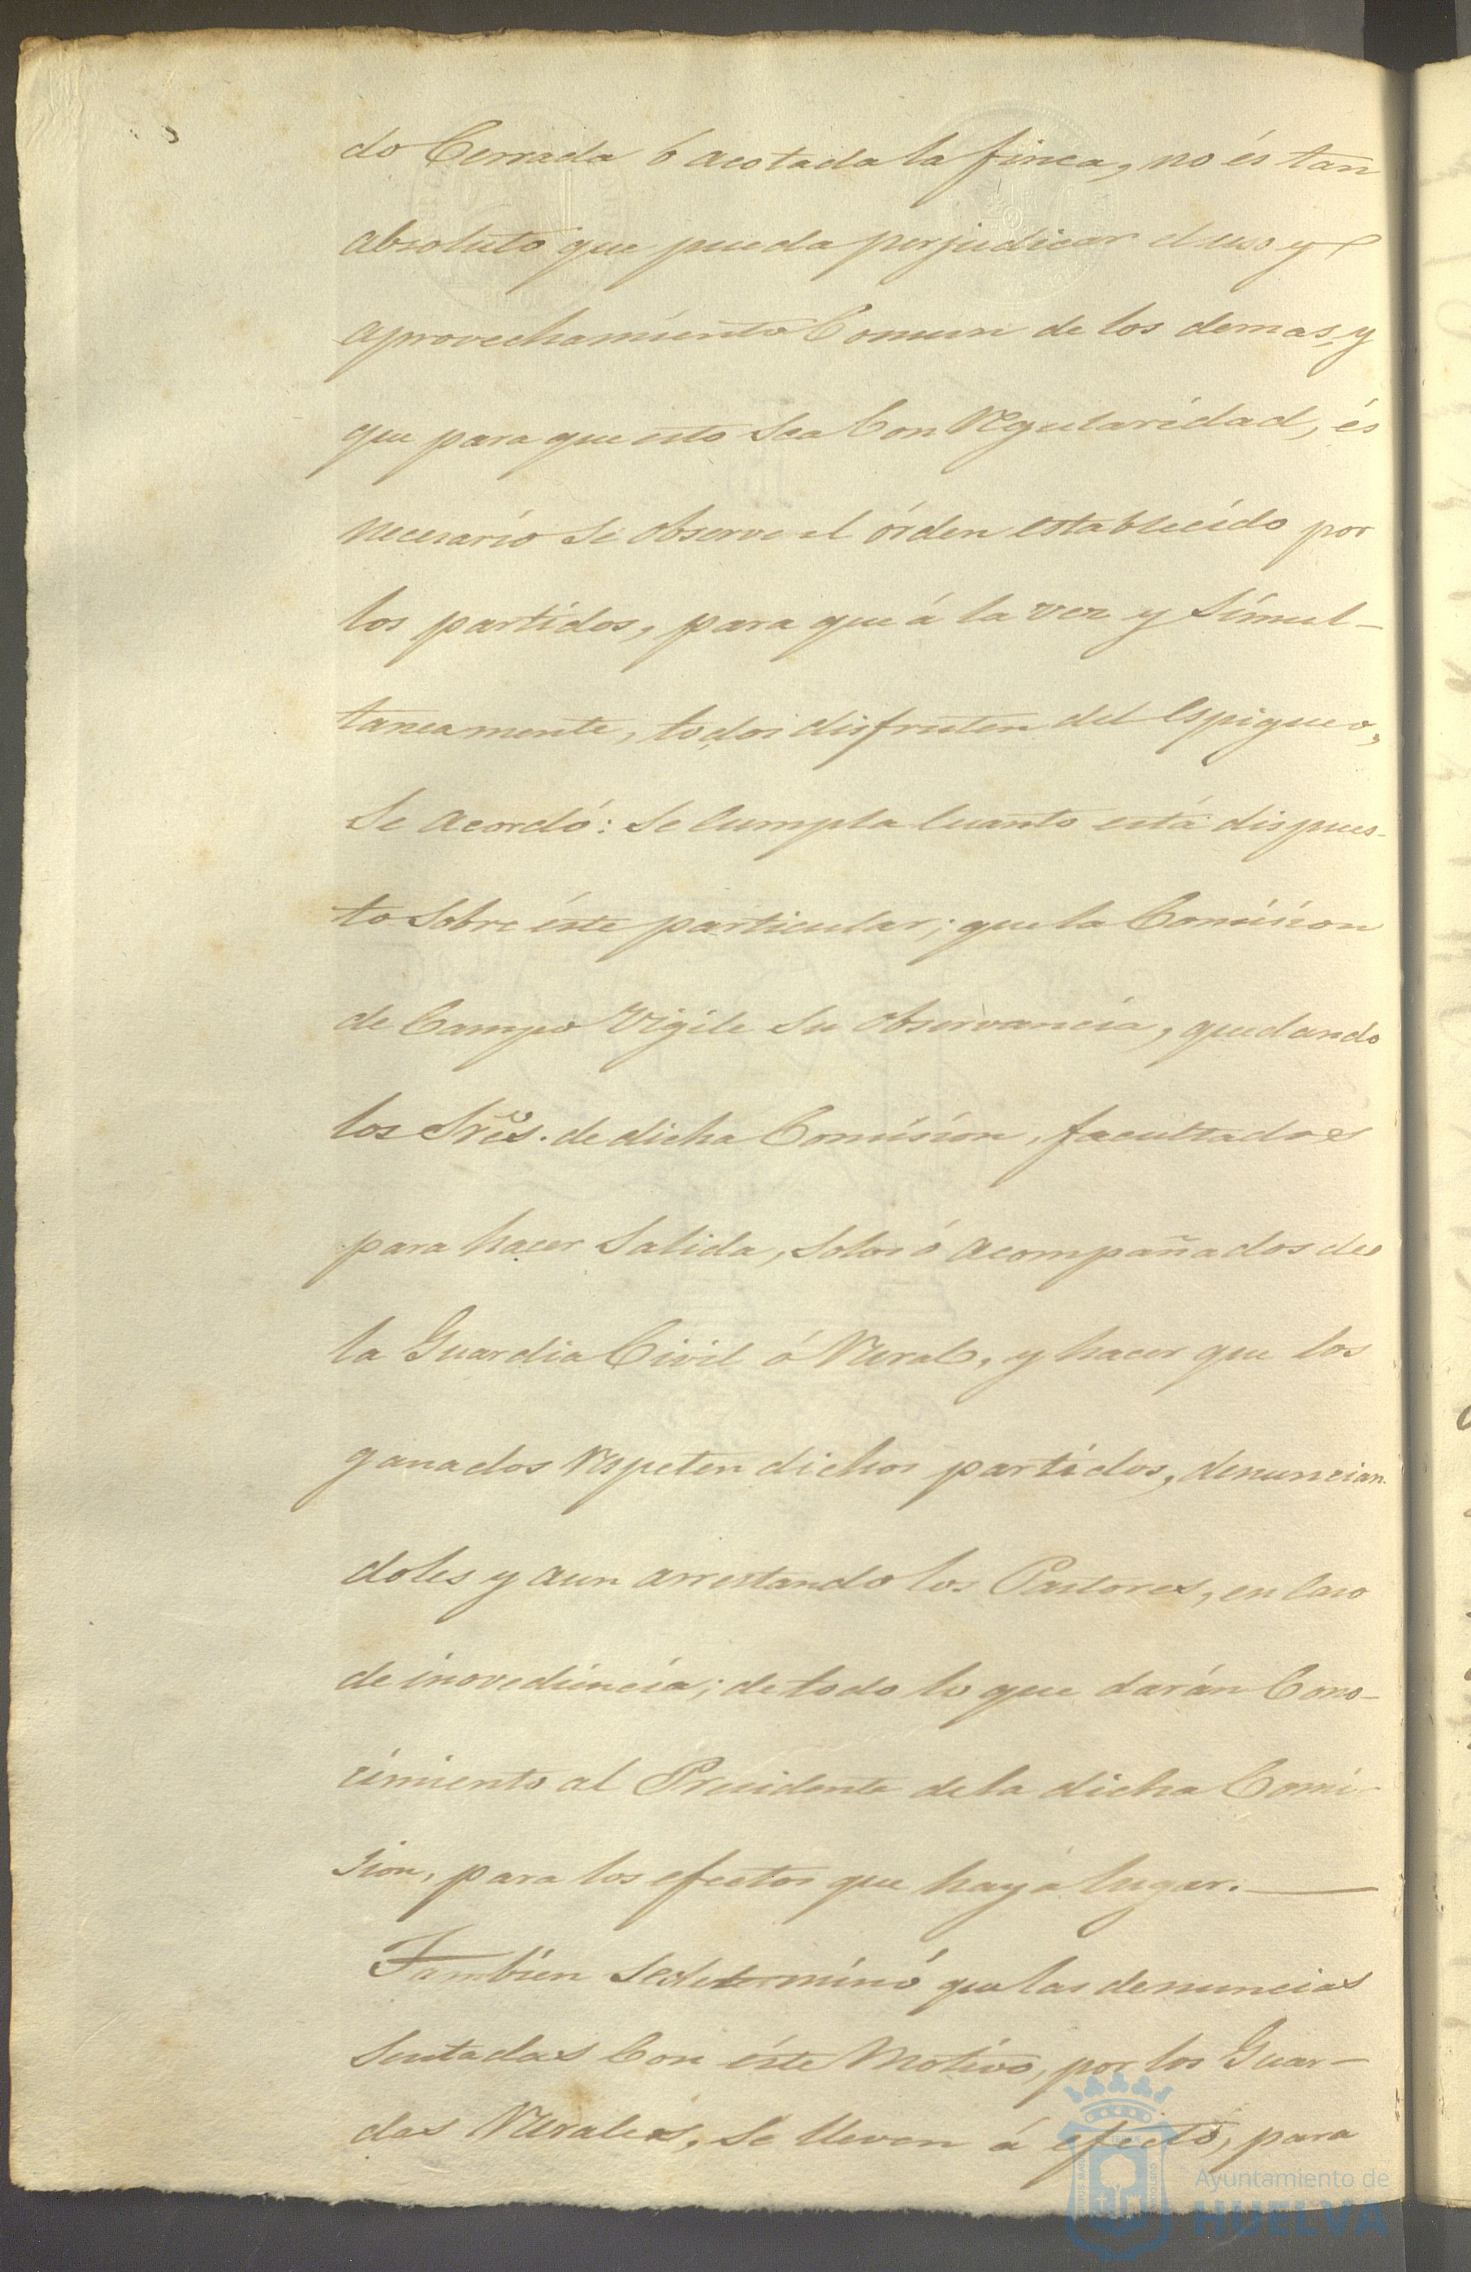 do Cerrada ó acotada la finca, no és tan
absoluto que pueda perjudicar el uso y
aprovechamiento Comun de los demas, y
que para que esto sea Con Regularidad, és
necesario se observe el órden establecido por
los partidos, para que á la vez y simul-
taneamente, todos disfruten del espigueo,
Se acordó: Se Cumpla Cuanto está dispues-
to sobre éste particular; que la Comision
de Campo vigile su observancia, quedando
los Sres. de dicha Comision, facultados
para hacer salida, solos ó acompañados de
la Guardia Civil ó Rural, y hacer que los
ganados Respeten dichos partidos, denuncian-
doles y aun arrestando los Pastores, en Caso
de inovediencia; de todo lo que darán Cono-
cimiento al Presidente de la dicha Comi-
sion, para los efectos que haya lugar.
Tambien se determinó que las denuncias
sentadas Con éste Motivo, por los Guar-
das Rurales, se lleven á efecto, para
Ayuntamiento de
HUELVA